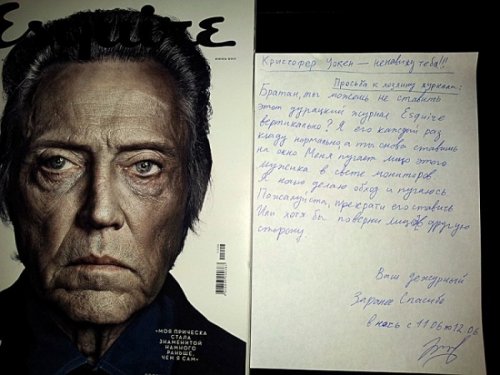 Esquire
«МОЯ ПРИЧЕСКА
СТАЛА
ЗНАМЕНИТОЙ
НАМНОГО
РАНЬШЕ,
ЧЕМ Я САМ»
Кристофер Уокен — ненавижу тебя!!!
Просьба к хозяину журнала:
Братан, ты можешь не ставить
этот дурацкий журнал Esquire
вертикально? Я его каждый раз
кладу нормально а ты снова ставишь
на окно Меня пугает лицо этого
мужика в свете мониторов
Я ночью делаю обход и пугаюсь
Пожалуйста, прекрати его ставить
Или хотя бы поверни лицом в другую
сторону.
Ваш дежурный
Заранее Спасибо
в ночь с 11.06 по 12.06